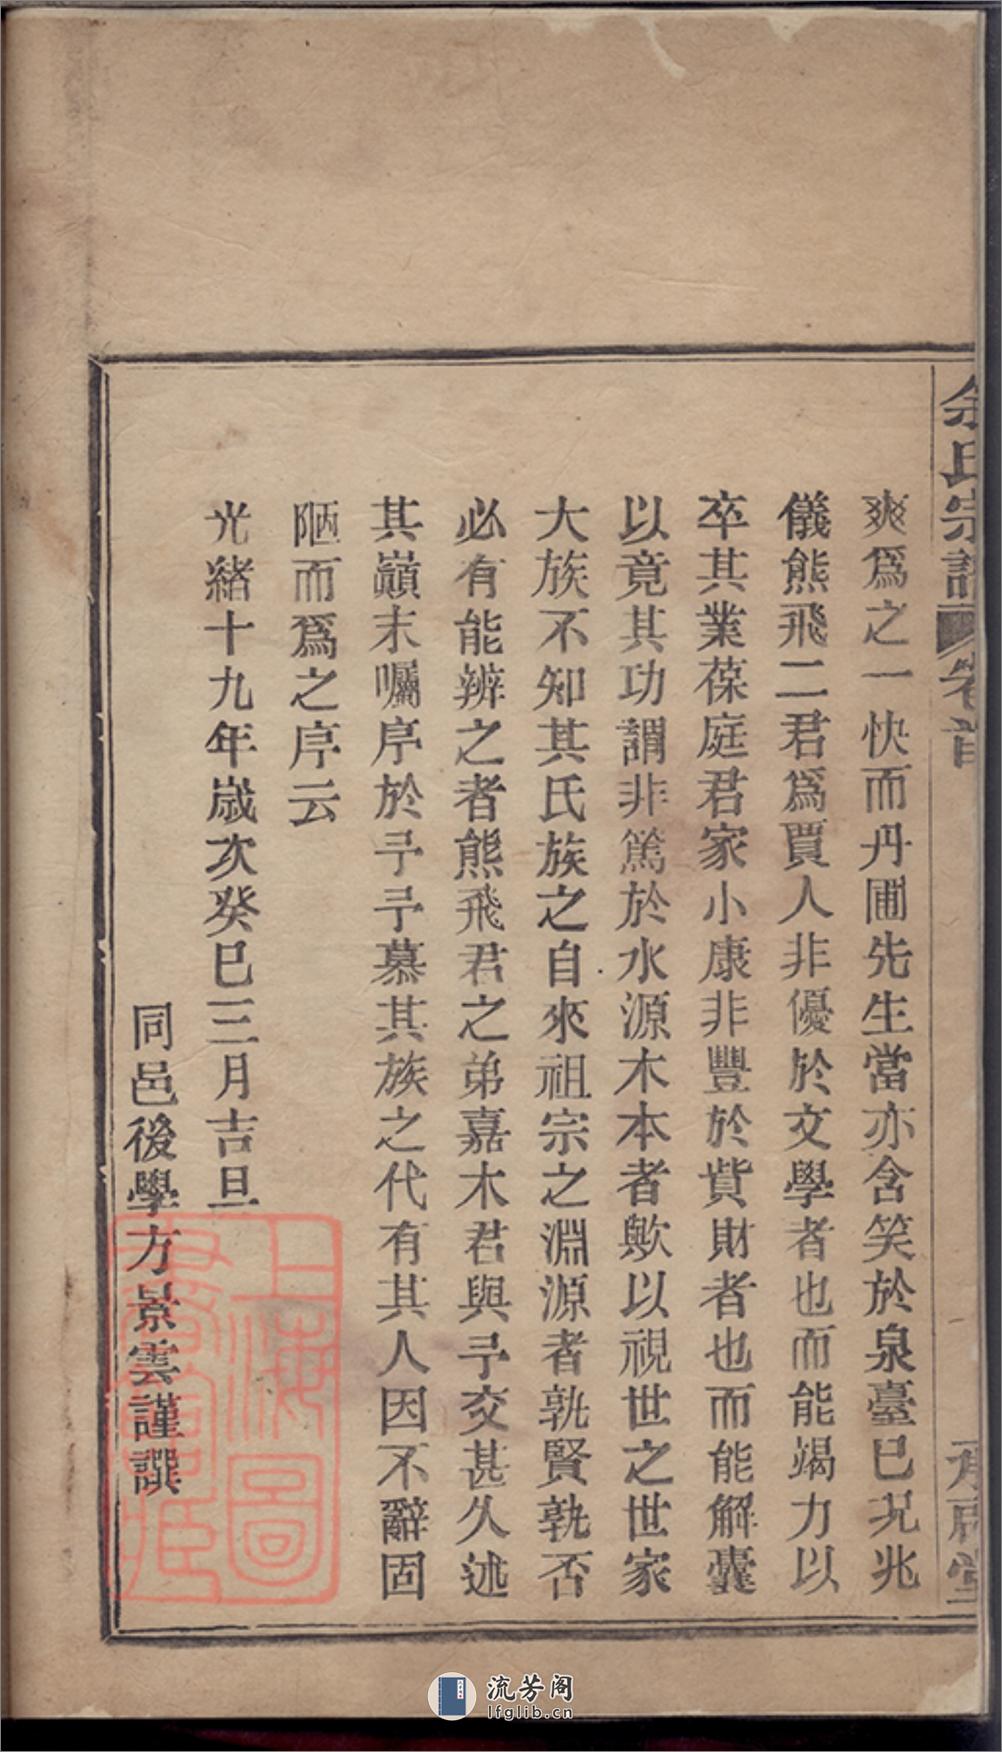 余氏宗譜 卷首
爽爲之一快而丹圃先生當亦含笑於泉臺巳況兆
儀熊飛二君爲賈人非優於文學者也而能竭力以
卒其業葆庭君家小康非豐於貲財者也而能解囊
以竟其功謂非篤於水源木本者歟以視世之世家
大族不知其氏族之自來祖宗之淵源者孰賢孰否
必有能辨之者熊飛君之弟嘉木君與予交甚久述
其巔末囑序於予予慕其族之代有其人因不辭固
陋而爲之序云
光緒十九年歲次癸巳三月吉旦
同邑後學方景雲謹譔
上海圖
書館藏
流芳阁
lfglib.cn